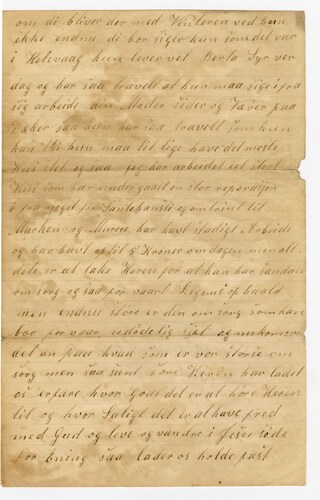 om di bliver der med Vinteren ved hun
ikke endnu di bor siger hun som det var
i Helevaag hun lever vel Berta Syr ver
dag og har saa travelt at hun maa sige i fra
sig arbeide den Moder sider og Væver paa
saa hun har saa travelt som hun
kan hun maa til lige have det meste
Hus stel og saa jeg har arbeidet i et stort
Hus som har undergaaet en stor reperasjon
i fra noget før Santehansti og om lavet til
og har havt stadigt Arbeide
og har havt op til 5 Kroner om dagen men alt
dele er at takke Herren for at han har saadan
om sorg og saa for vaart Legems op haald
men endnu store er den om sorg som han
bær for vaar sjæl og nu kommer
det an paa hvad som er vor største om
sorg men saa sant som Herren har ladet
os erfare hvor Godt det er at høre Herren
til og hvor Saligt det er at have fred
med Gud og leve og vandre i Jesu søde
for bning saa lader os holde fast